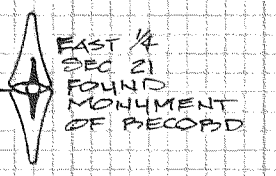 EAST 1/4
SEC 21
FOUND
MONUMENT
OF RECORD